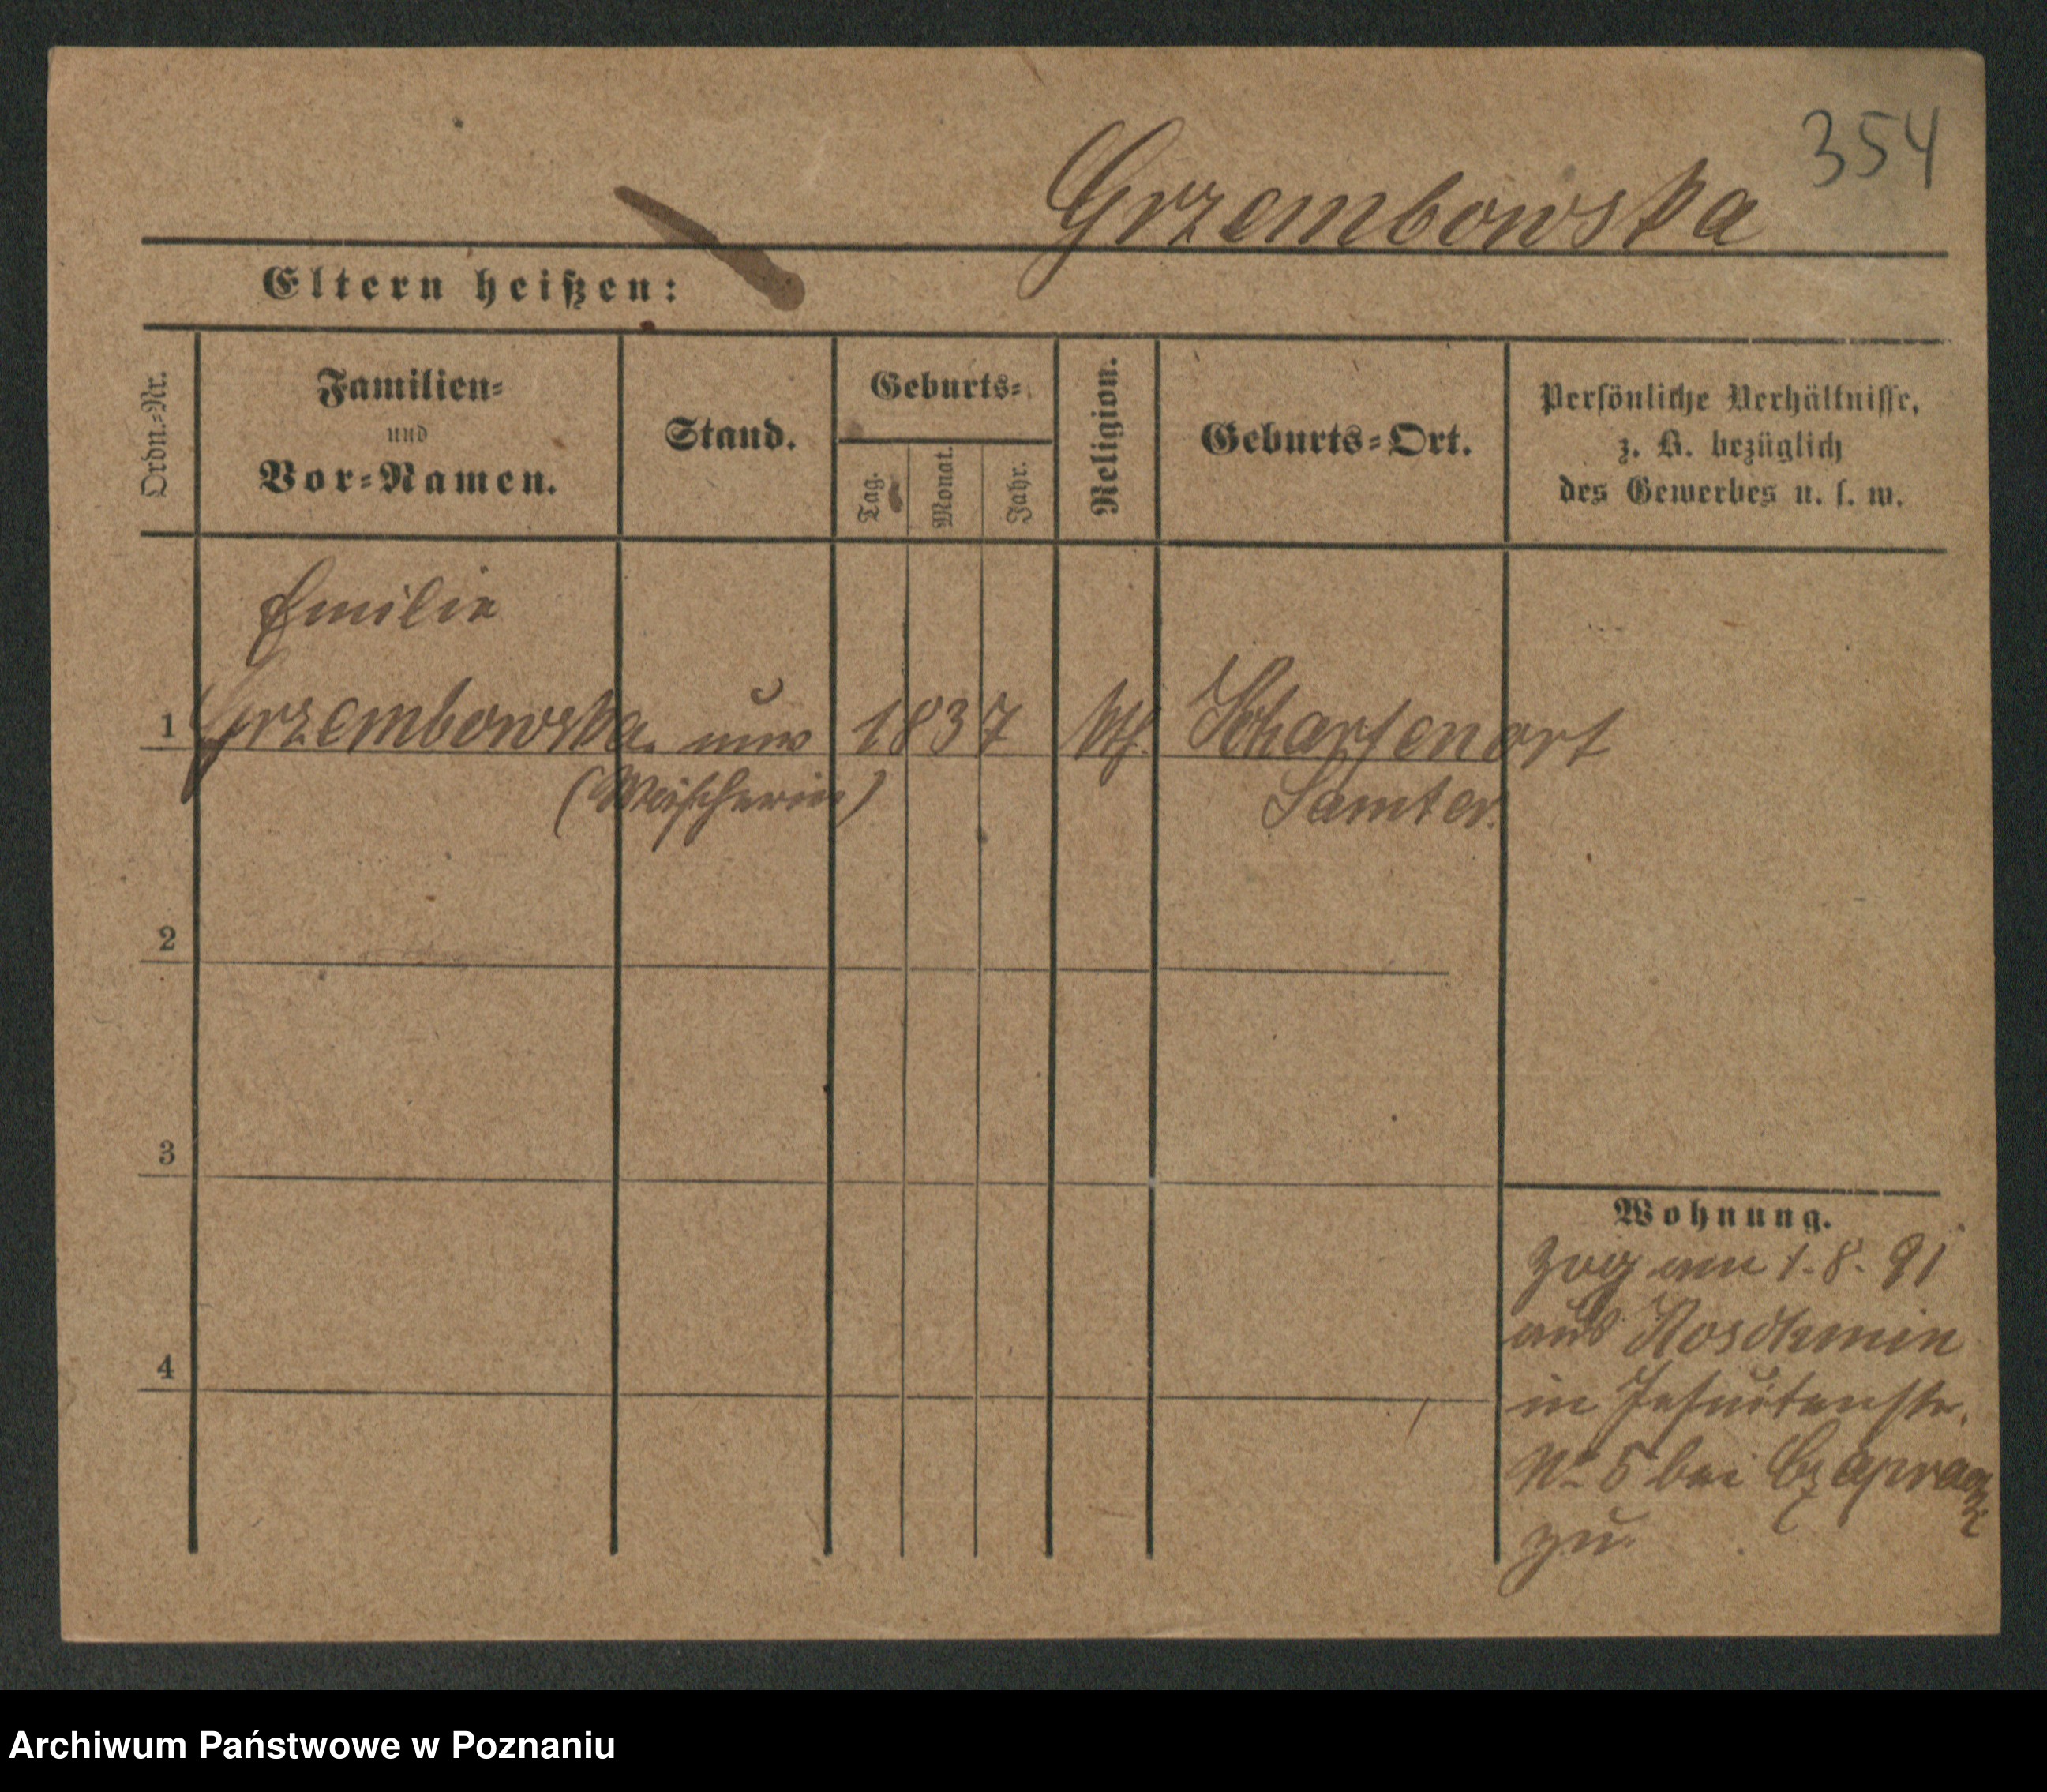 354
Grzembowska
Eltern heißen:
Ordn.-Nr.
Familien-
und
Vor-Namen.
Stand.
Geburts-
Tag.
Monat.
Jahr.
Religion.
Geburts-Ort.
Persönliche Verhältnisse,
z. B. bezüglich
des Gewerbes u. s. w.
Emilie
1 Grzembowska unv 1837 kth. Scharfenort
(Wäscherin) Samter.
2
3
4
Wohnung.
Zog am 1.8.91
aus Koschmin
in Jesuitenstr.
No 5 bei
zu.
Archiwum Państwowe w Poznaniu